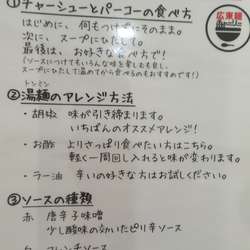 ①チャーシューとパーコーの食べ方
はじめに、何もつけずにそのまま。
次に、スープにひたして。
最後は、お好きな食べ方で!
(ソースにつけてもいろんな味を楽しめるし、
スープにひたして温めてから食べるのもおすすめです!)
広東麺
チャーリー
トンミン
②湯麺のアレンジ方法
・胡椒 味が引き締まります。
いちばんのオススメアレンジ!
・お酢 よりさっぱり食べたい方はこちら。
軽く一周回し入れると味が変わります。
・ラー油 辛いの好きな方はお試しください。
③ソースの種類
赤 唐辛子味噌
少し酸味の効いたピリ辛ソース